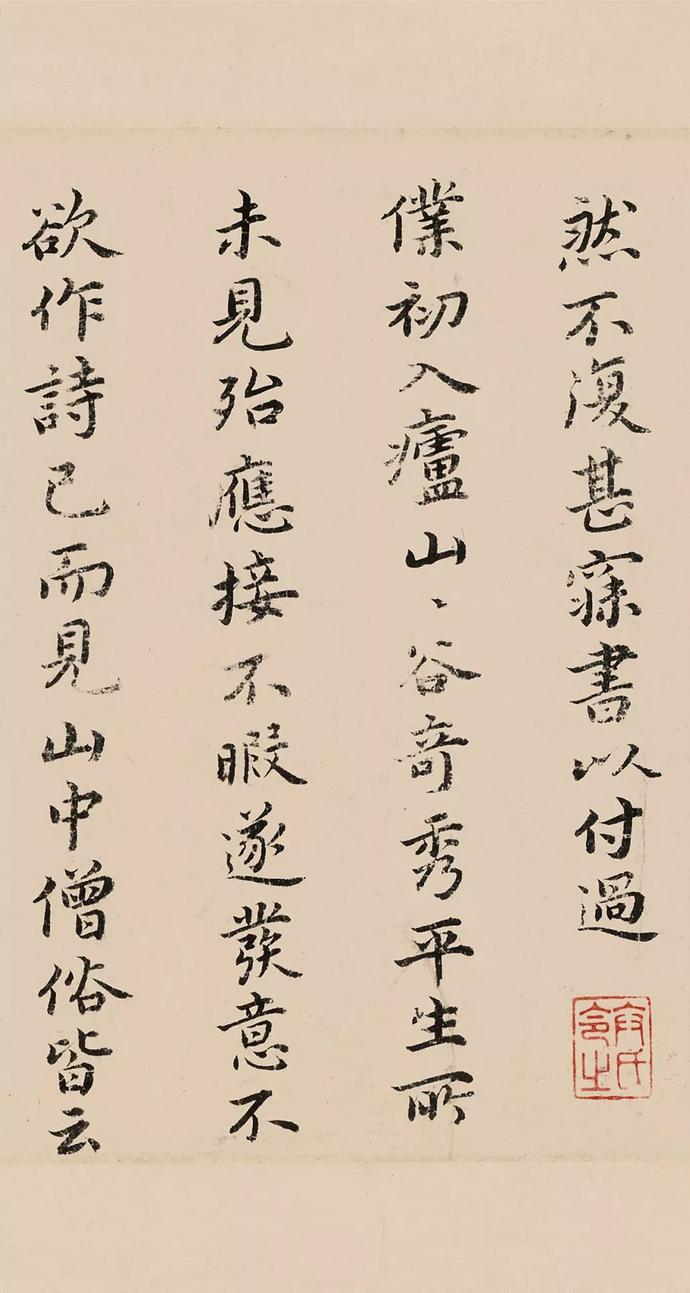 然不復甚寐書以付過
僕初入廬山〻谷奇秀平生所
未見殆應接不暇遂發意不
欲作詩已而見山中僧俗皆云